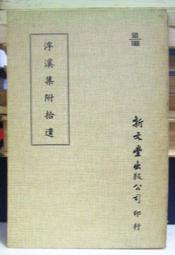 浮溪集附拾遺
新文豐出版公司 印行